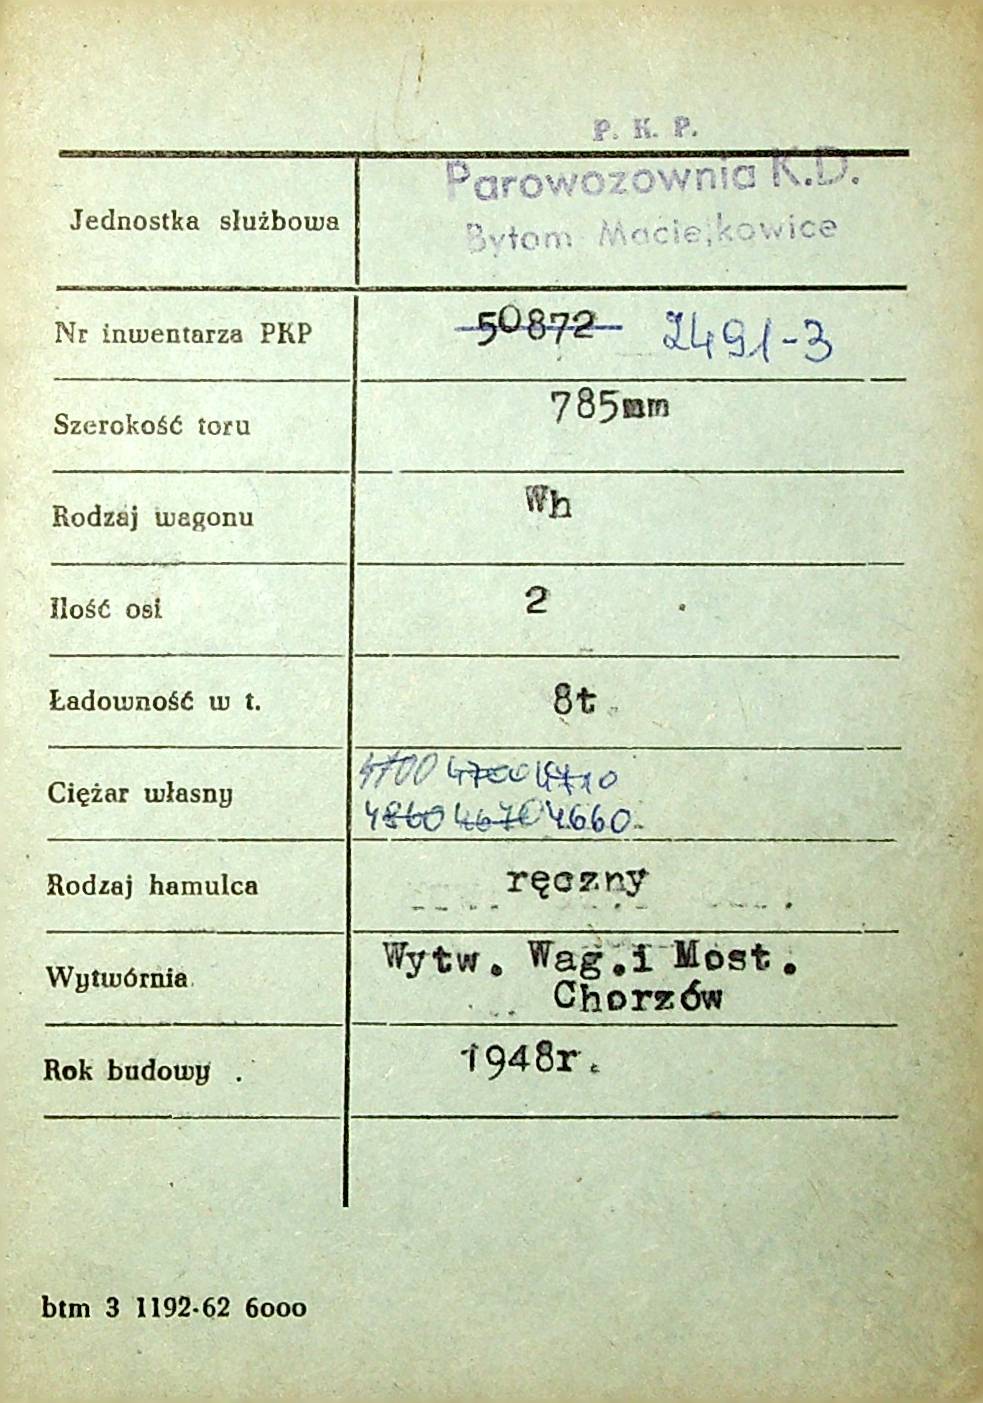 P. K. P.
Parowozownia K.D.
Jednostka służbowa
Bytom Maciejkowice
Nr inwentarza PKP 50872 2491-3
Szerokość toru 785mm
Rodzaj wagonu Wh
Ilość osi 2
Ładowność w t. 8t
4700 4700 4710
Ciężar własny
4860 4670 4660
Rodzaj hamulca ręczny
Wytwórnia Wytw. Wag.i Most.
Chorzów
Rok budowy . 1948r.
btm 3 1192-62 6000